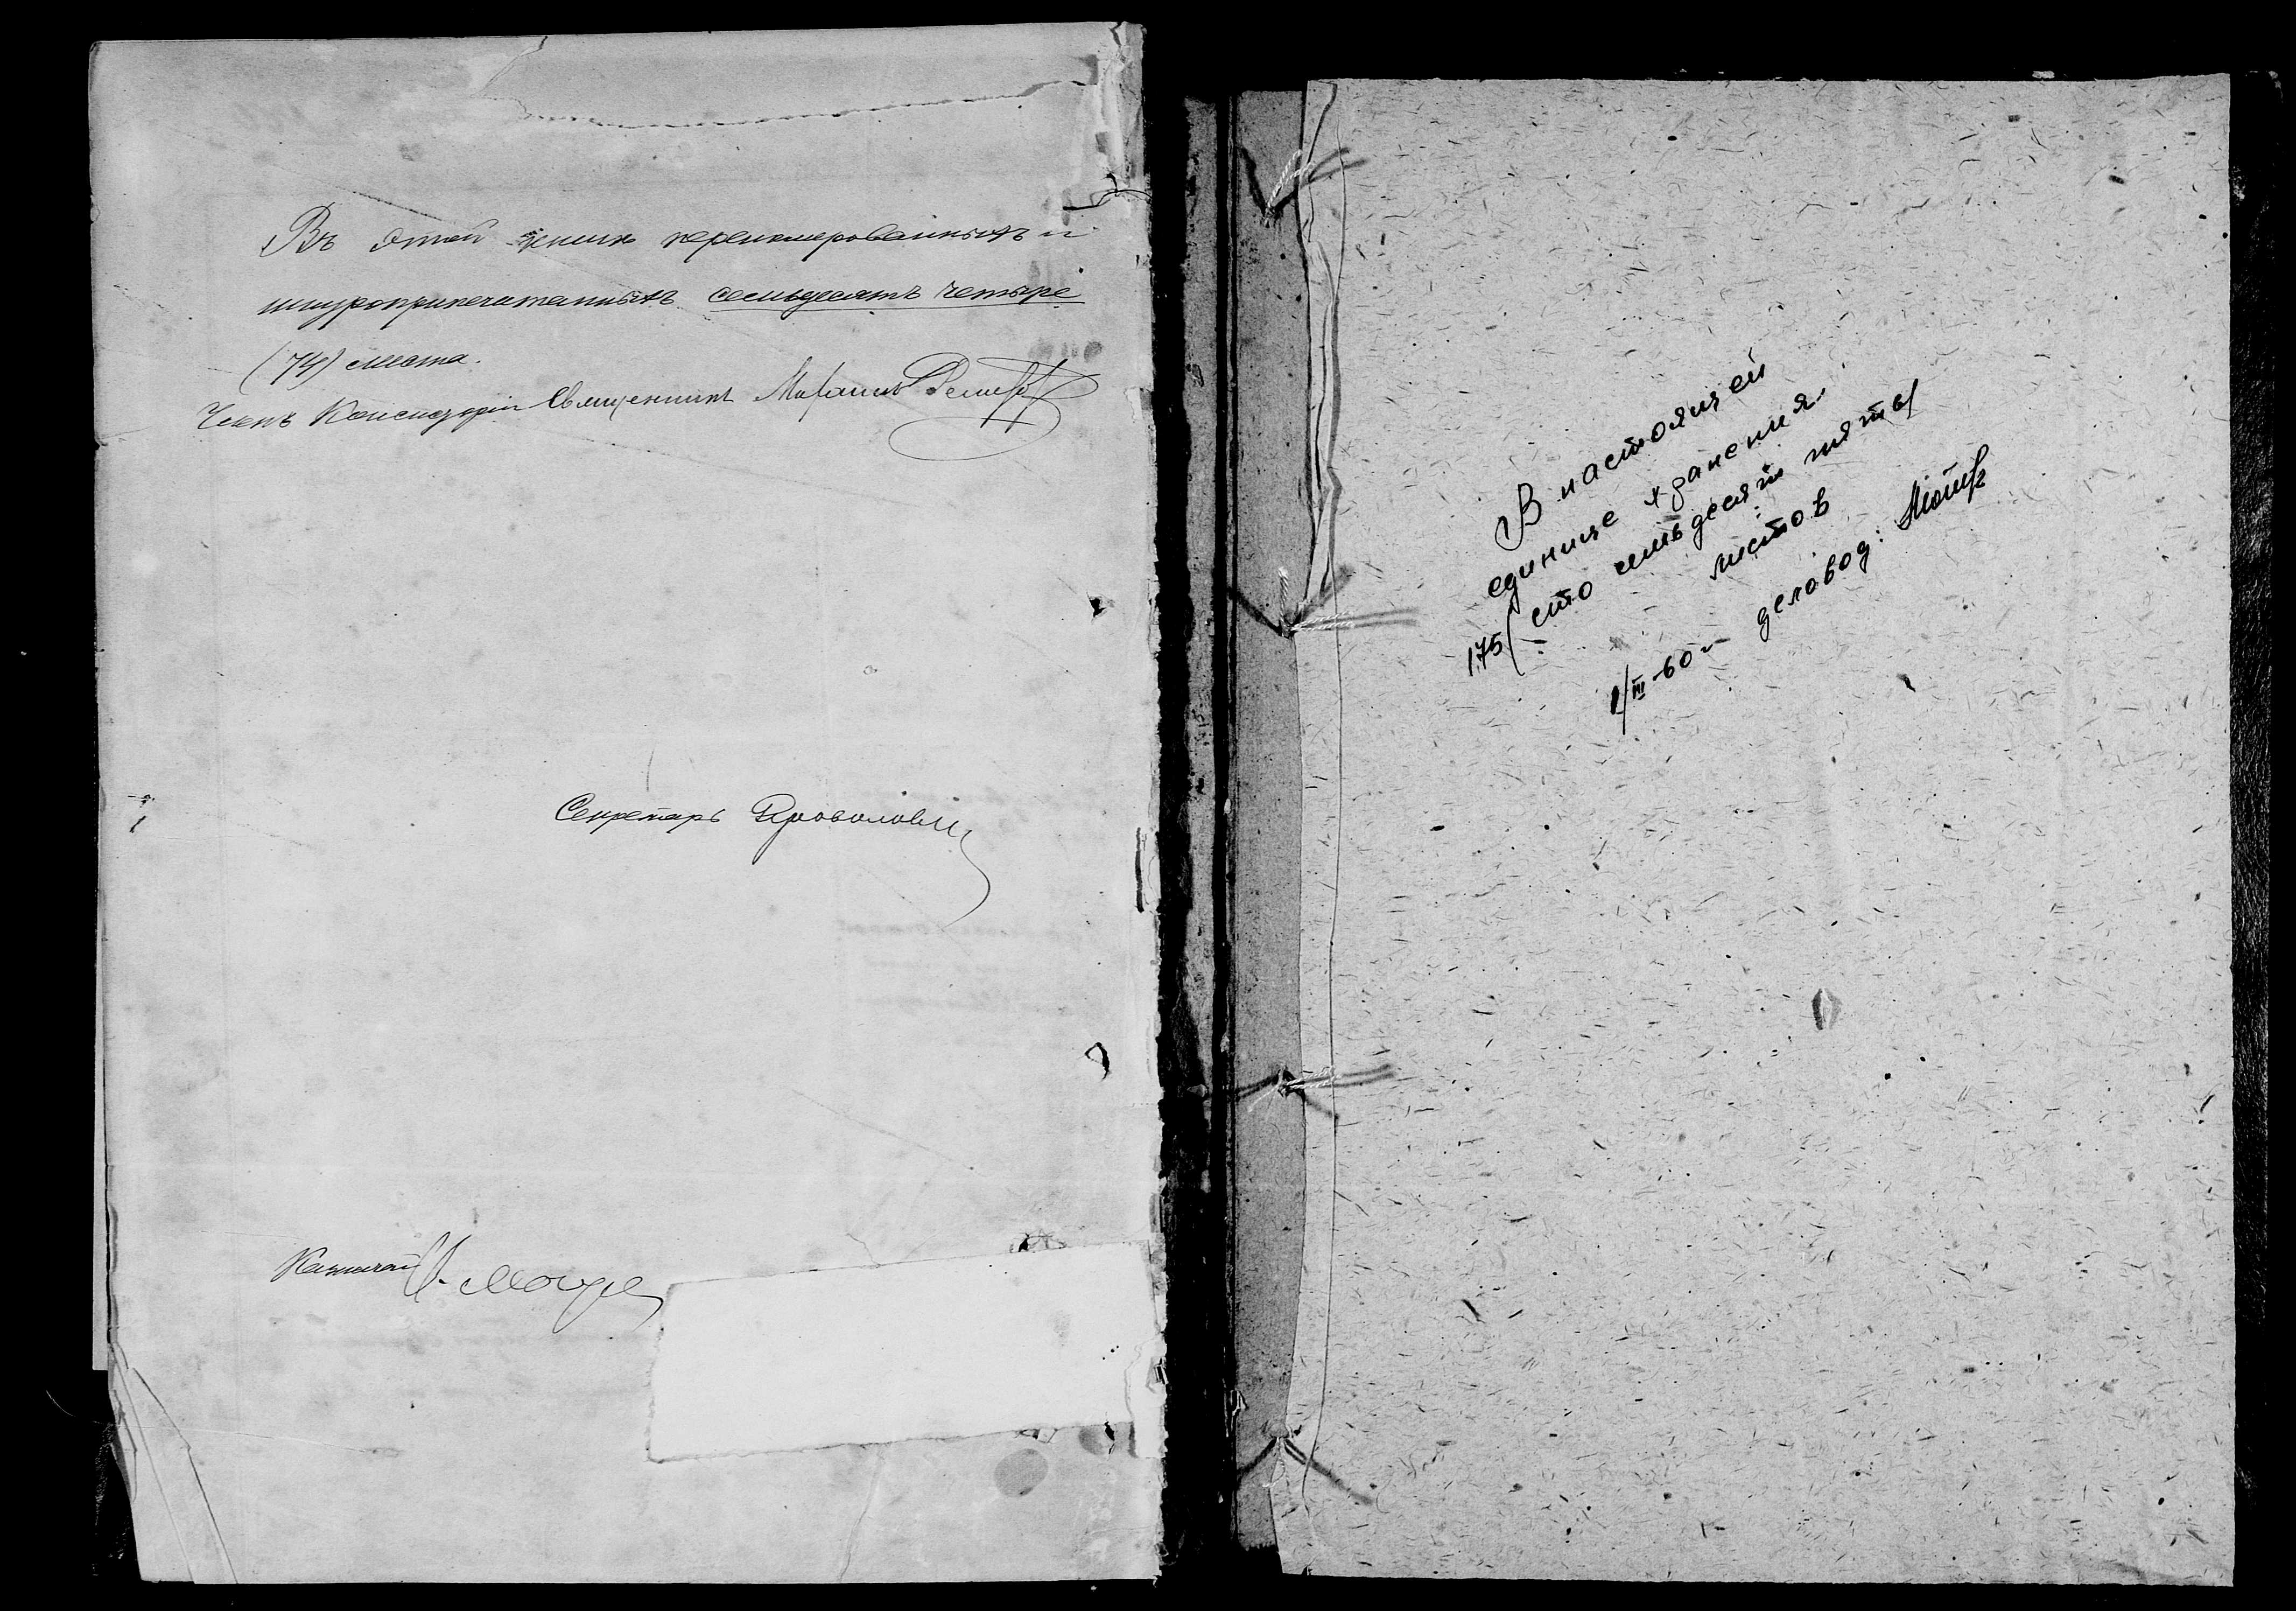 Въ этой книгѣ перенумерованныхъ и
шнуроприпечатанныхъ семьдесятъ четыре
(74) листа.
Членъ Консисторіи Священникъ Михаилъ
Секретарь
Казначей
В настоящей
единице хранения
175 (сто семьдесят пять)
листов
1/III-60 г. деловод: